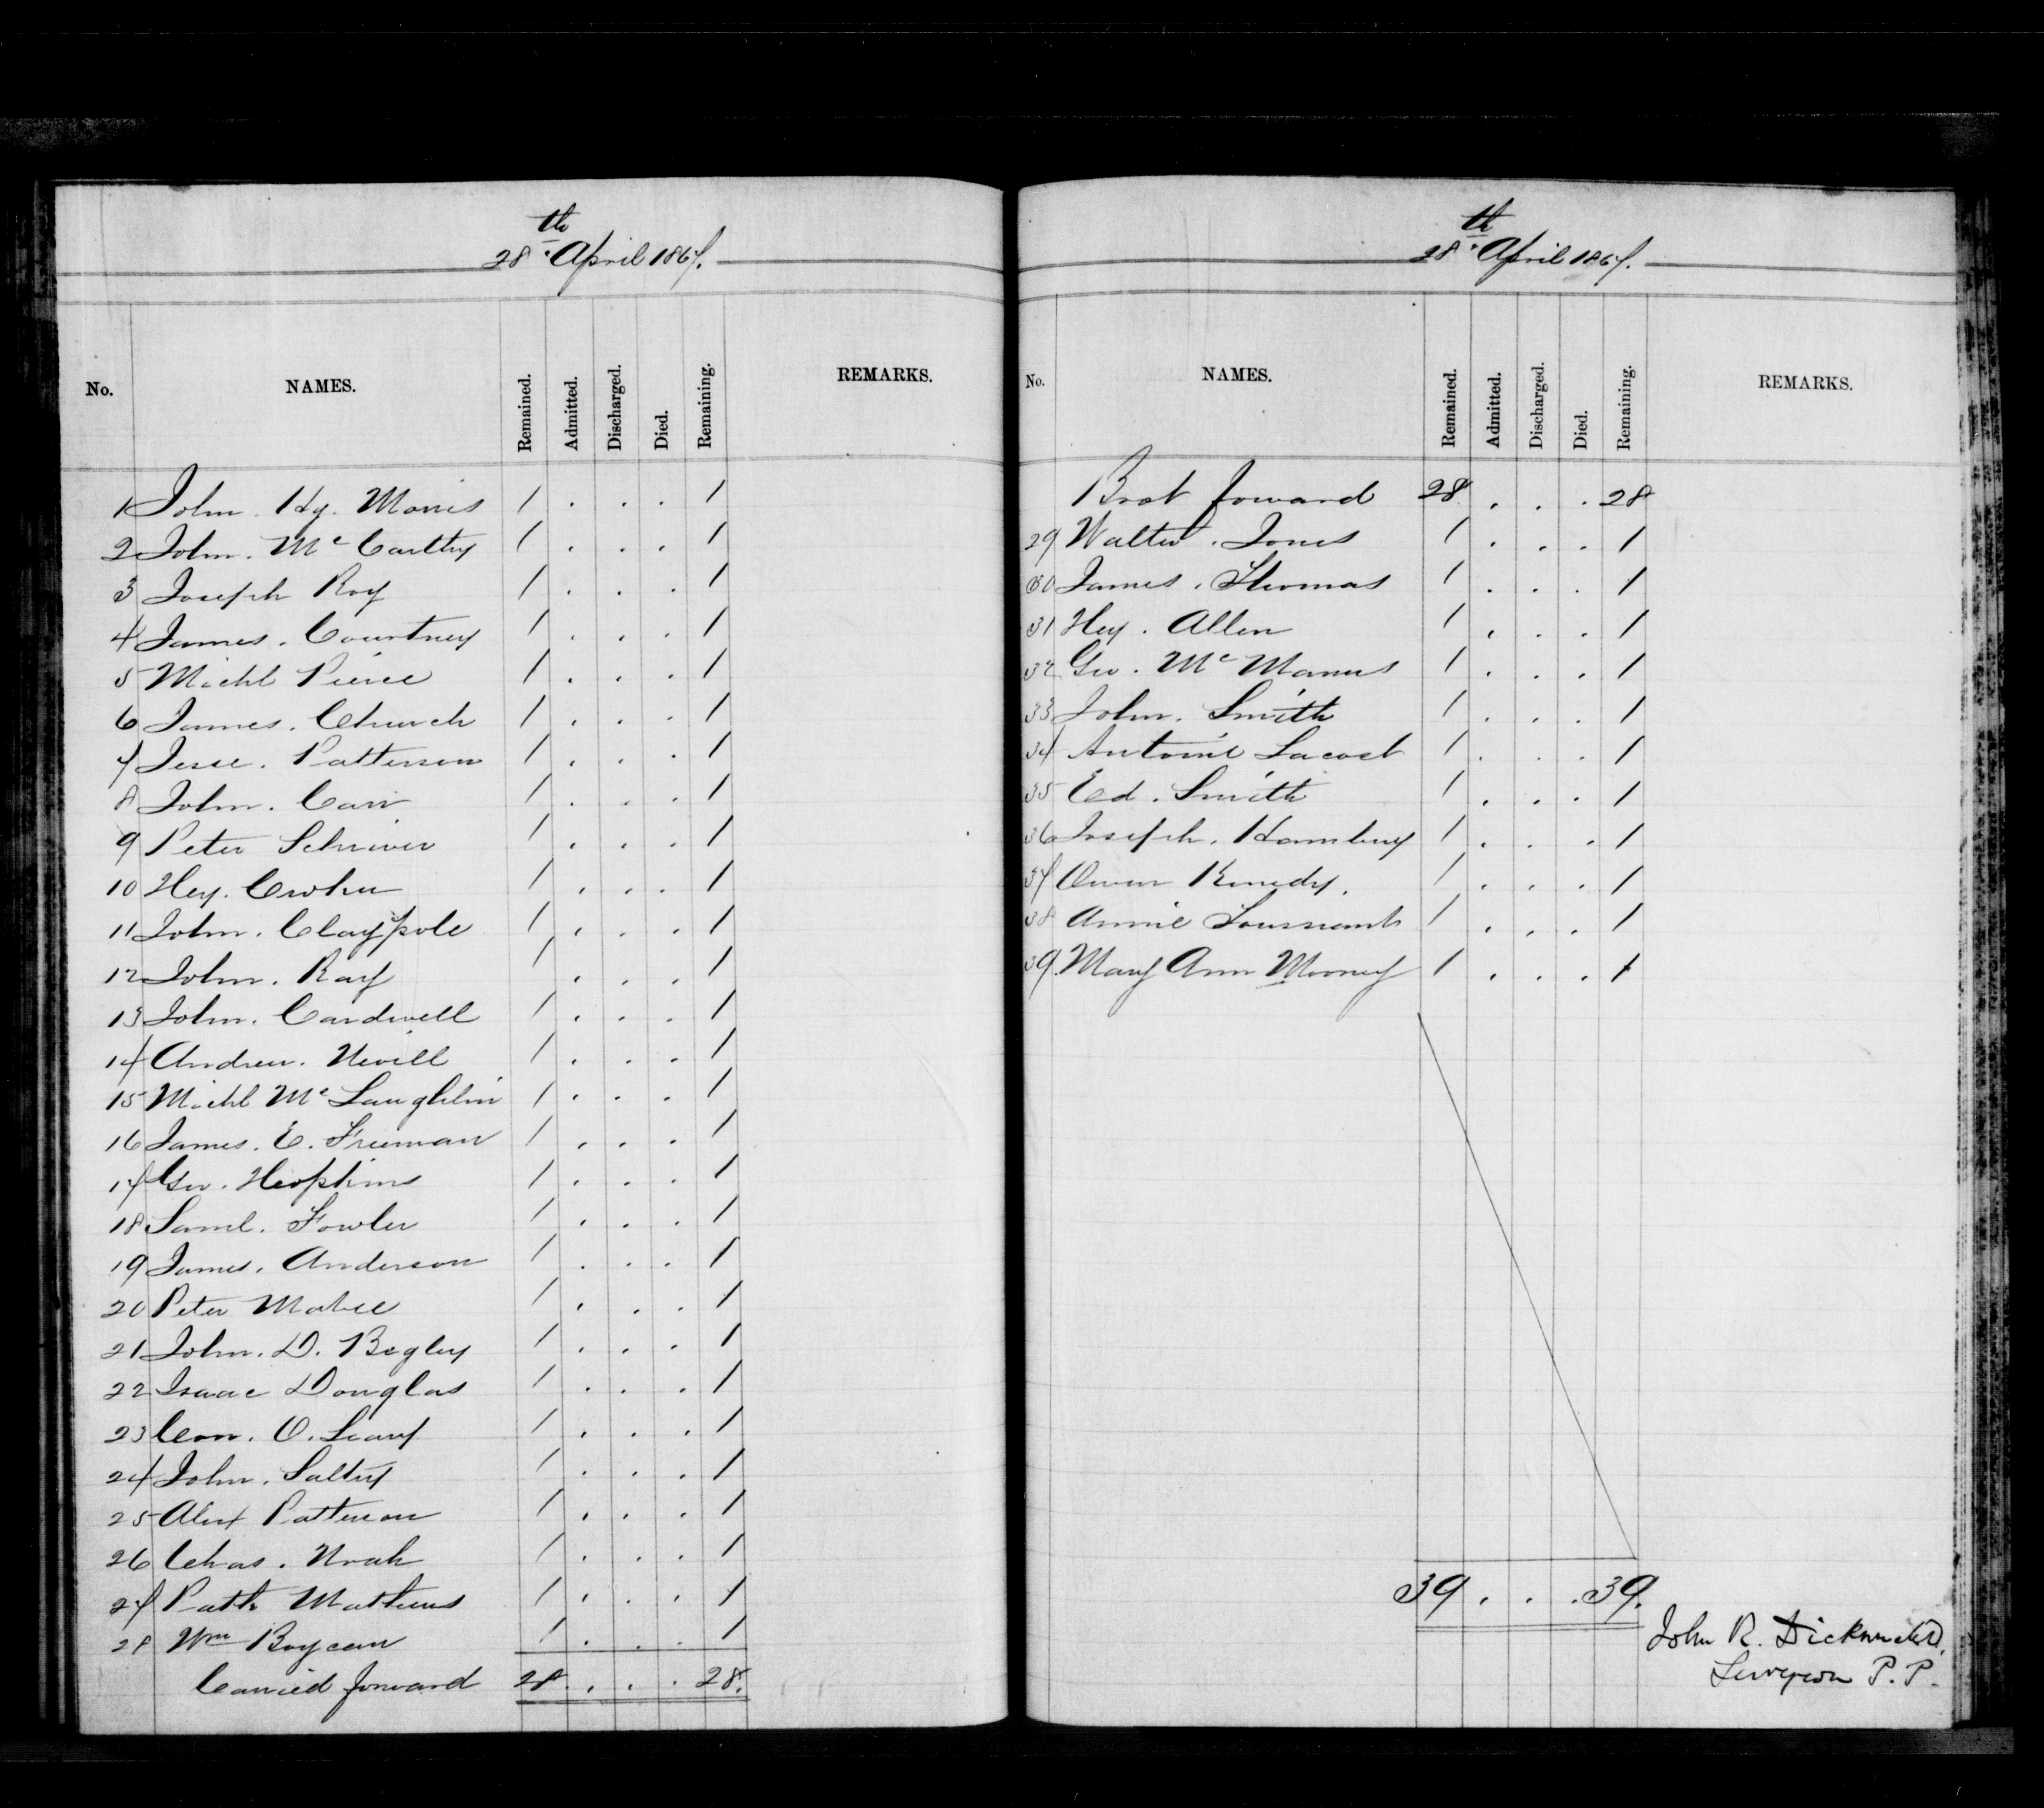 28th April 1867.
No. NAMES. Remained. Admitted. Discharged. Died. Remaining. REMARKS.
1 John. Hy. Morris 1 . . . 1
2 John. Mc Carthy 1 . . . 1
3 Joseph Roy 1 . . . 1
4 James. Courtney 1 . . . 1
5 Michl Pierce 1 . . . 1
6 James. Church 1 . . . 1
7 Jesse. Patterson 1 . . . 1
8 John. Carr 1 . . . 1
9 Peter Schriver 1 . . . 1
10 Hey. 1 . . . 1
11 John. Claypole 1 . . . 1
12 John. Ray 1 . . . 1
13 John. Cardwell 1 . . . 1
14 Andrew. Nevill 1 . . . 1
15 Michl Mc Laughlin 1 . . . 1
16 James. E. Freeman 1 . . . 1
17 Geo. Hopkins 1 . . . 1
18 Saml. Fowler 1 . . . 1
19 James. Anderson 1 . . . 1
20 Peter Mabee 1 . . . 1
21 John. D. Begley 1 . . . 1
22 Isaac Douglas 1 . . . 1
23 Corn. O. Leary 1 . . . 1
24 John. Saltry 1 . . . 1
25 Alex Patterson 1 . . . 1
26 Chas. Noah 1 . . . 1
27 Patk Mathews 1 . . . 1
28 Wm Boycan 1 . . . 1
Carried forward 28 . . . 28.
28th April 1867.
No. NAMES. Remained. Admitted. Discharged. Died. Remaining. REMARKS.
Brot forward 28 . . . 28
29 Walter. Jones 1 . . . 1
30 James. Thomas 1 . . . 1
31 Hey. Allen 1 . . . 1
32 Geo. Mc Manus 1 . . . 1
33 John. Smith 1 . . . 1
34 Antoine Lacost 1 . . . 1
35 Ed. Smith 1 . . . 1
36 Joseph. Hambury 1 . . . 1
37 Owen Kenedy. 1 . . . 1
38 Annie Toussaint 1 . . . 1
39. Mary Ann Mooney 1 . . . 1
39 . . . 39.
John R. Dickson M.D.
Surgeon P. P.